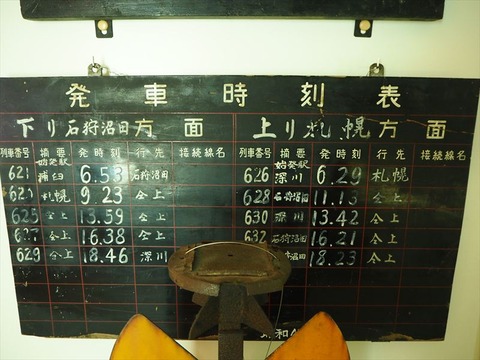 発車時刻表
下り石狩沼田方面 上り札幌方面
列車番号 摘要 発時刻 行先 接続線名 列車番号 摘要 発時刻 行先 接続線名
621 始発駅浦臼 6.53 石狩沼田 626 始発駅深川 6.29 札幌
623 札幌 9.23 仝上 628 石狩沼田 11.13 仝上
625 仝上 13.59 仝上 630 深川 13.42 仝上
627 仝上 16.38 仝上 632 石狩沼田 16.21 仝上
629 仝上 18.46 深川 沼田 18.23 仝上
和